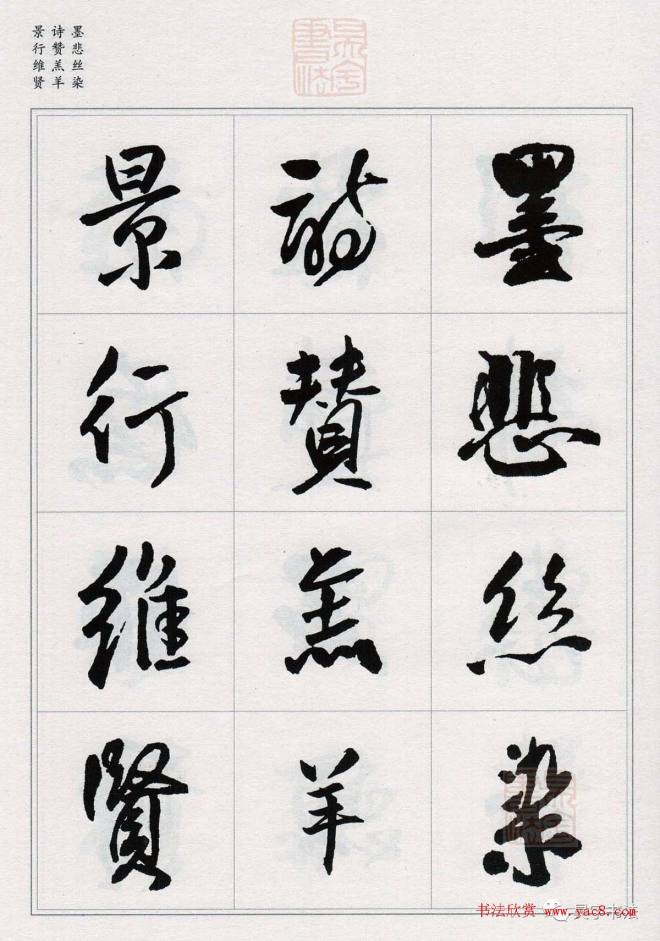 墨悲丝染
诗赞羔羊
景行维贤
墨悲絲染
詩贊羔羊
景行維賢
书法欣赏 www.yac8.com